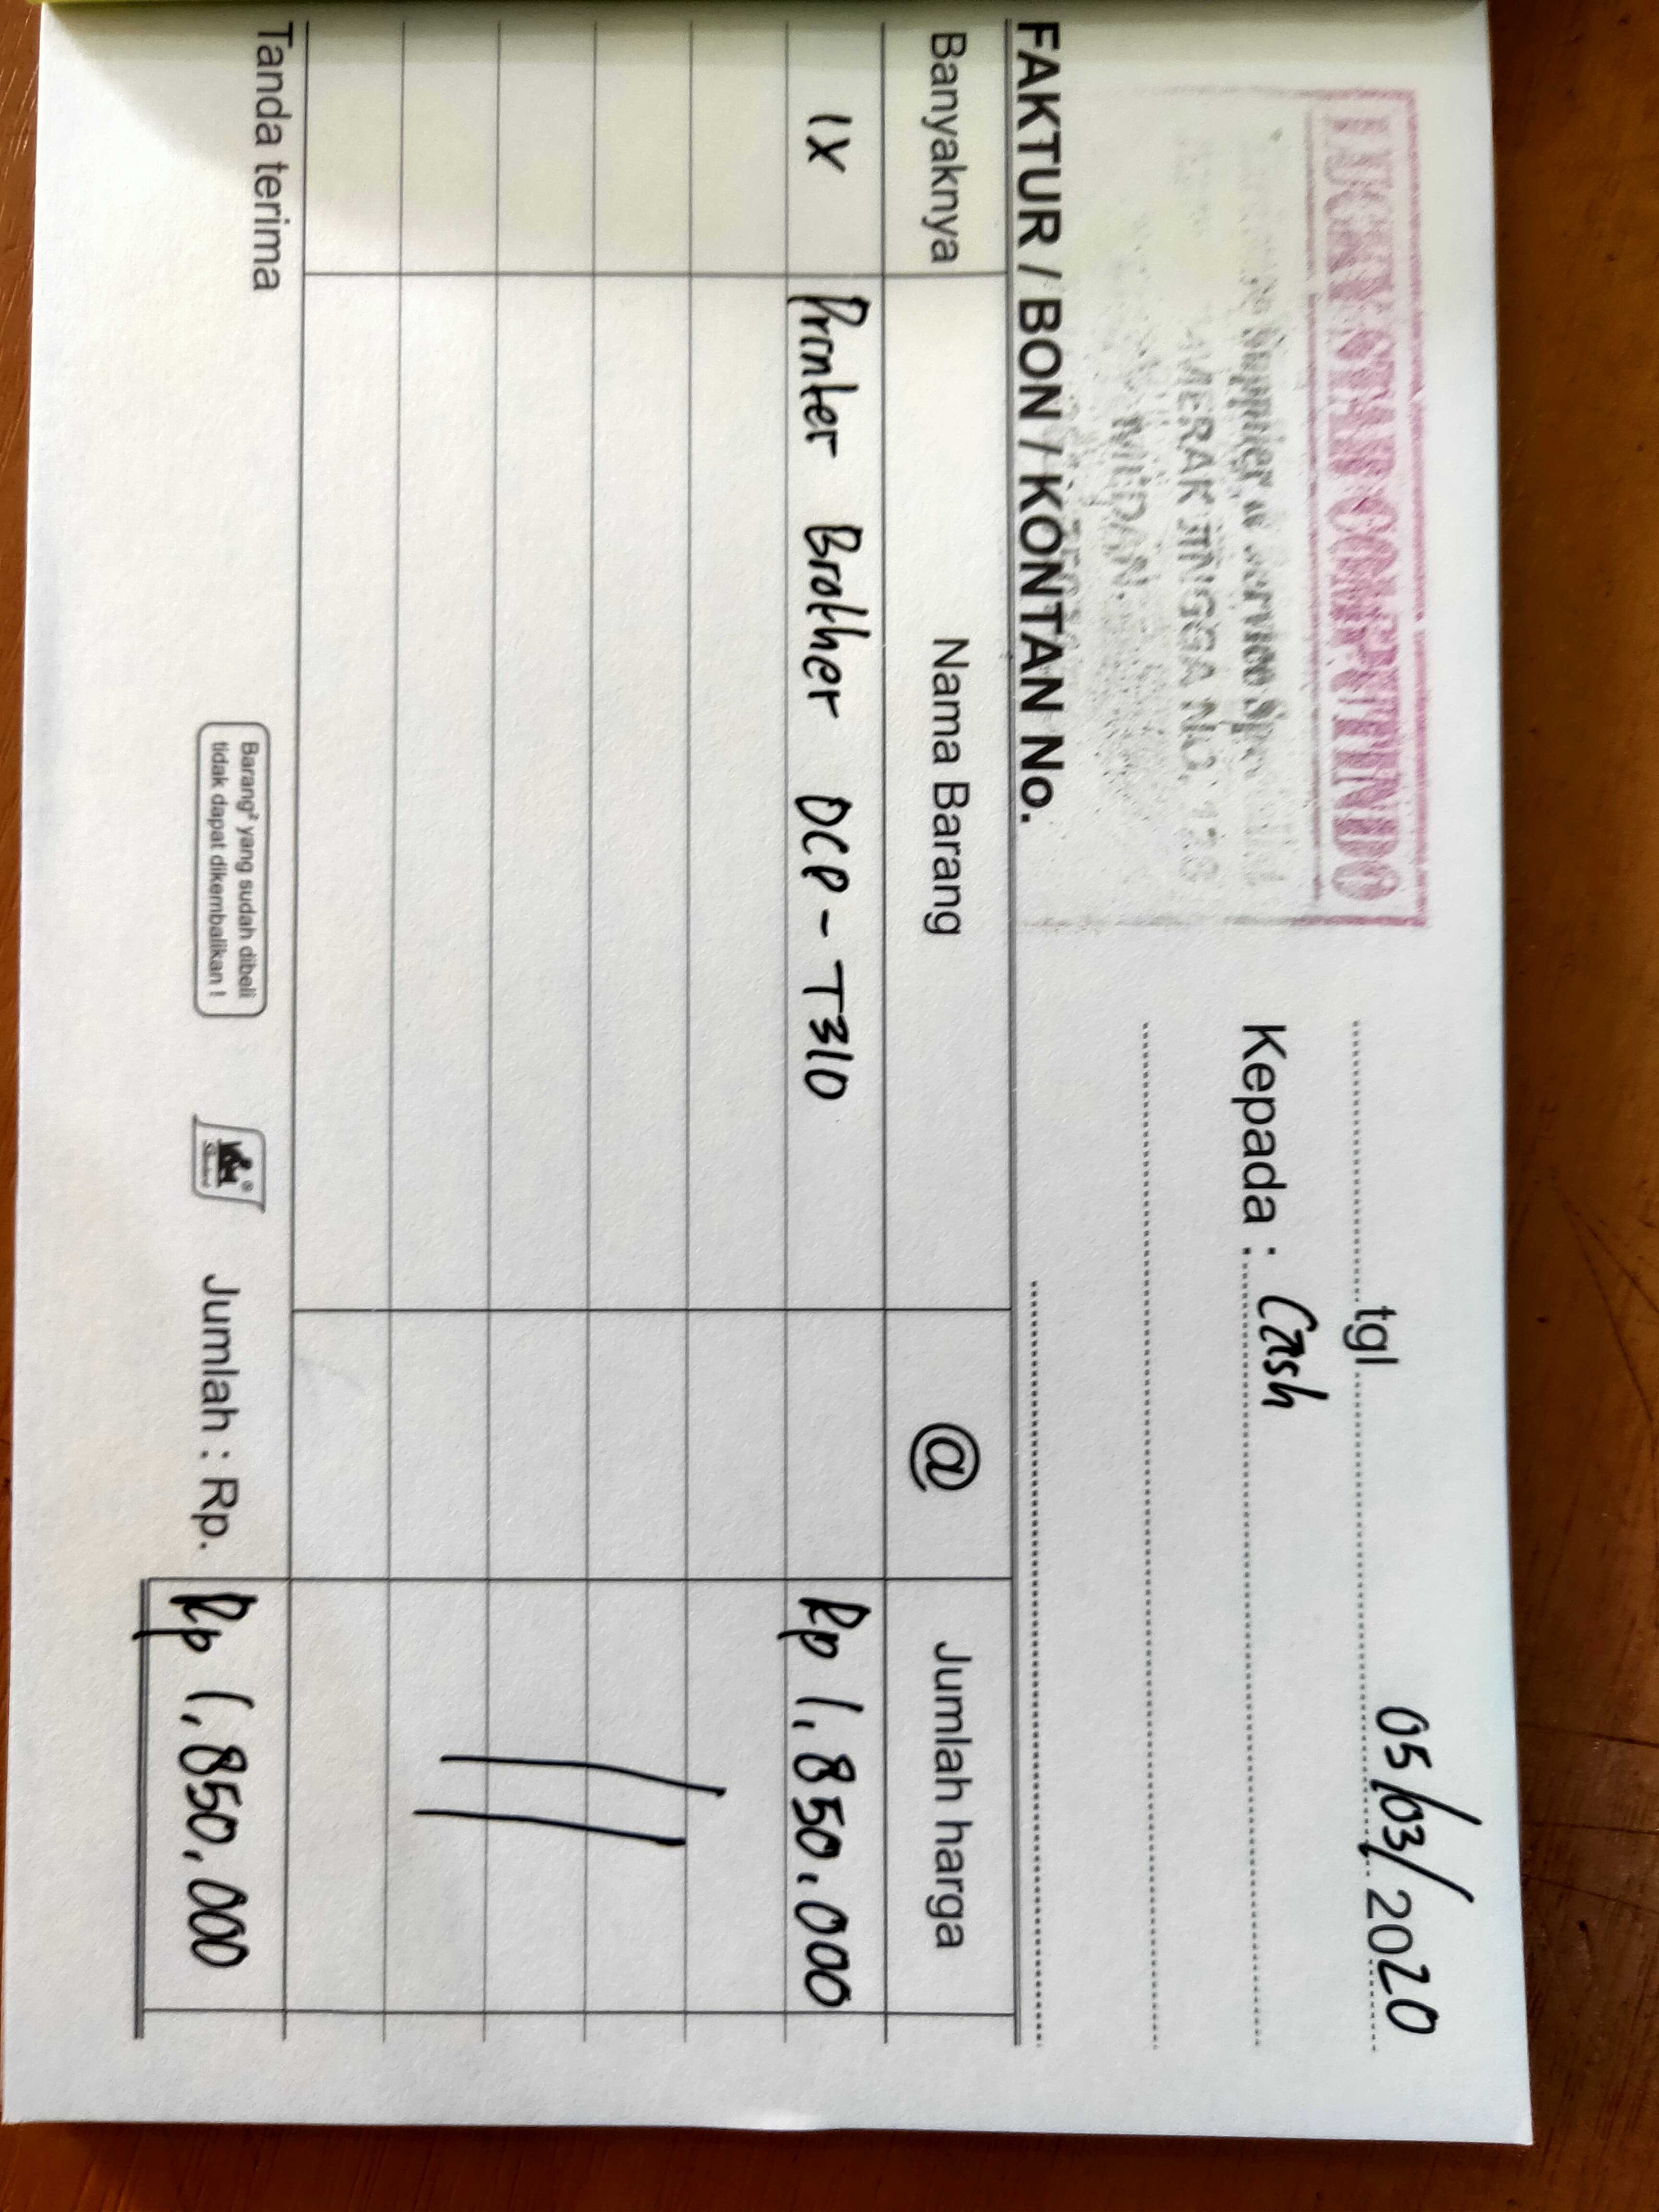 LUCKY STAR COMPUTINDO
Supplier & Service
MERAK JINGGA NO.
MEDAN.
tgl 05/03/2020
Kepada : Cash
FAKTUR / BON / KONTAN No.
Banyaknya Nama Barang @ Jumlah harga
1X Printer Brother DCP-T310 Rp 1.850.000
Tanda terima
Barang² yang sudah dibeli
tidak dapat dikembalikan !
Jumlah : Rp. Rp 1.850.000